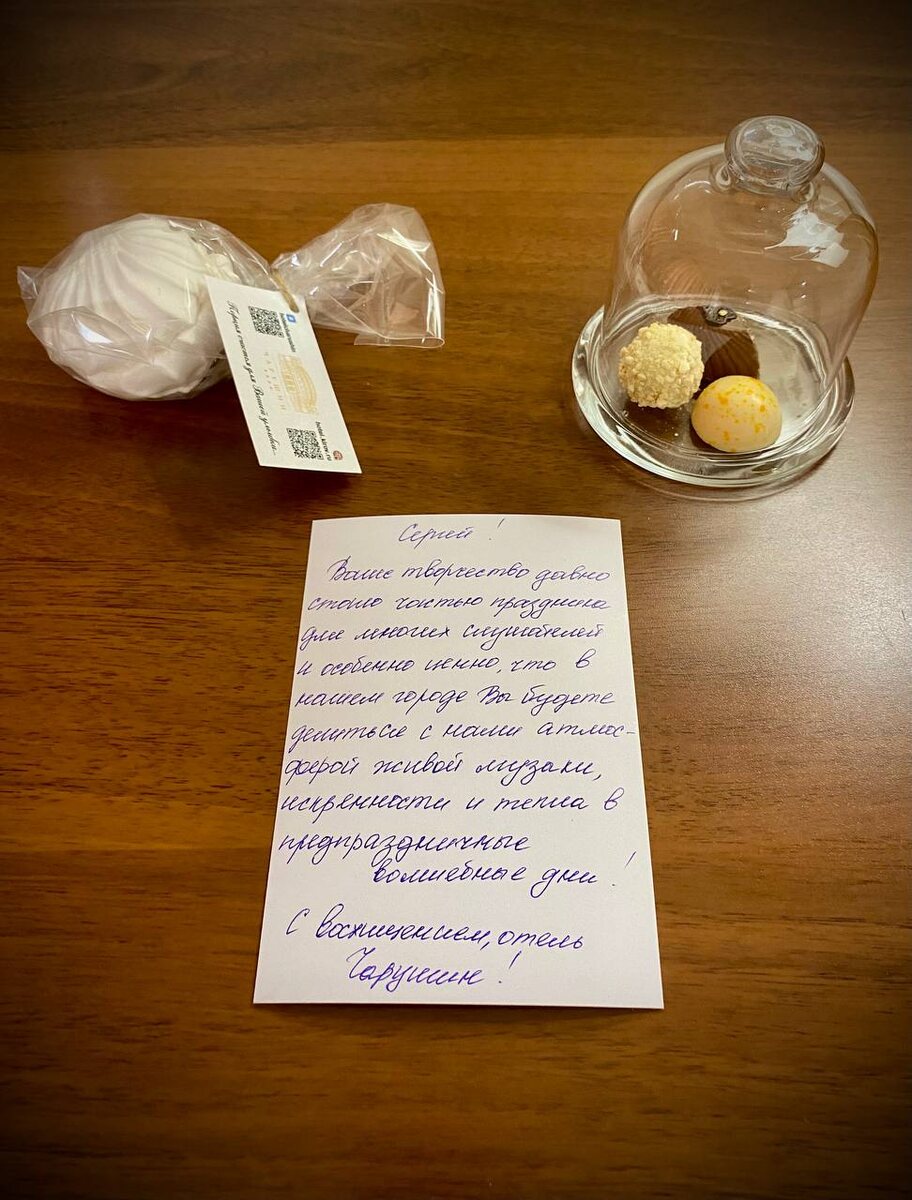 Сергей!
Ваше творчество давно
стало частью праздника
для многих слушателей
и особенно ценно, что в
нашем городе Вы будете
делиться с нами атмос-
ферой живой музыки,
искренности и тепла в
предпраздничные
волшебные дни!
С восхищением, отель
Чарушин!
ЧАРУШИН
hotel-kirov.ru